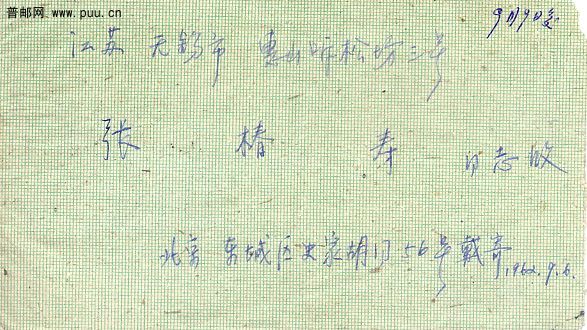 普邮网
www.puu.cn
9月9日复
江苏 无锡市 惠山听松坊三号
张椿寿 同志收
北京 东城区史家胡同56号戴寄
1962.9.6.